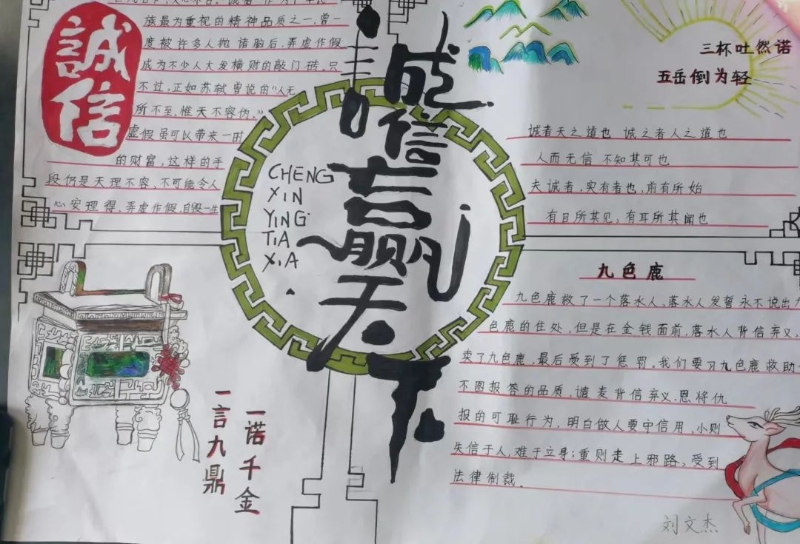 誠信
族最为重视的精神品质之一,曾
度被许多人抛诸脑后,弄虚作假
成为不少人大发横财的敲门砖,只
不过,正如苏轼曾说的"人无
所不至,惟天不容伪。"
虚假虽可以带来一时
的财富,这样的手
段仍是天理不容,不可能令人
心安理得,弄虚作假,自假一生
诚信赢天下
CHENG
XIN
YING
TIA
XIA
三杯吐然诺
五岳倒为轻
诚者天之道也 诚之者人之道也
人而无信 不知其可也
夫诚者,实有者也,前有所始
有目所共见,有耳所共闻也
九色鹿
九色鹿救了一个落水人,落水人发誓永不说出九
色鹿的住处,但是在金钱面前,落水人背信弃义,
卖了九色鹿,最后受到了惩罚。我们要习九色鹿救助
不图报答的品质,谴责背信弃义,恩将仇
报的可耻行为,明白做人要守信用,小则
失信于人,难于立尊;重则走上邪路,受到
法律制裁。
一诺千金
一言九鼎
刘文杰